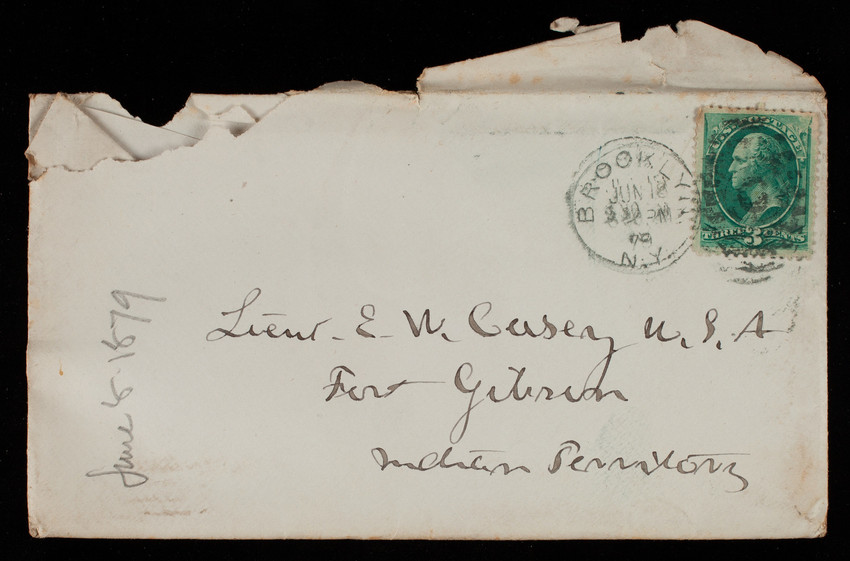 BROOKLYN
JUN 12
30 PM
79
N.Y.
U.S. POSTAGE
THREE 3 CENTS
Lieut. E. W. Casey U.S.A
Fort Gibson
Indian Territory
June 8 1879